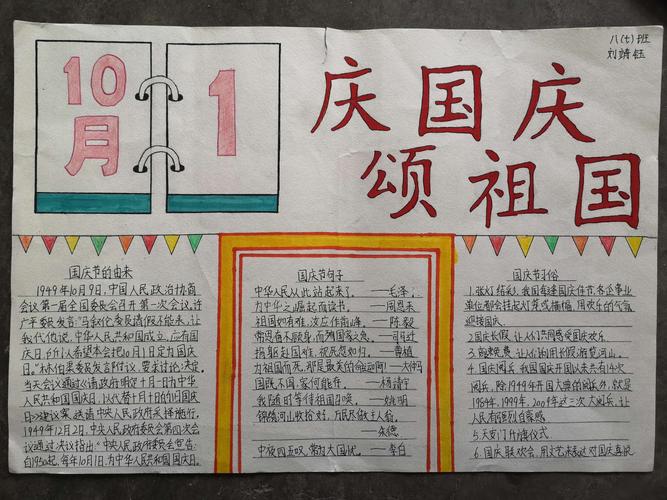 八(七)班
刘靖钰
10
月
1
庆国庆
颂祖国
国庆节的由来
1949年10月9日,中国人民政治协商
会议第一届全国委员会召开第一次会议。许
广平委员发言:"马叙伦委员请假不能来,让
我代他说,中华人民共和国成立,应有国
庆日,所以希望本会把10月1日定为国庆
日。"林伯渠委员发言附议,要求讨论
当天会议通过《请政府明定十月一日为中华
人民共和国国庆日,以代替十月十日的旧国庆
日》建议案,送请中央人民政府采择施行。
1949年12月2日,中央人民政府委员会第四次会
议通过决议指出:"中央人民政府委员会宣告:
自1950起,每年10月1日,为中华人民共和国国庆日。
国庆节句子
中华人民从此站起来了。——毛泽
为中华之崛起而读书。——周恩来
祖国如有难,汝应作前锋。——陈毅
常思奋不顾身,而殉国家之急。——司马迁
捐躯赴国难,视死忽如归。——曹植
为祖国而死,那是最美的命运啊!——大仲马
国既不国,家何能存。——杨靖宇
我随时等待祖国召唤。——姚明
锦绣河山收拾好,万民尽做主人翁。
——朱德
中夜四五叹,常为大国忧。——李白
国庆节习俗
1.张灯结彩,我国每逢国庆佳节,各企事业
单位都会挂起灯笼或横幅,用欢乐的气氛
迎接国庆。
2.国庆长假,让人们共同感受国庆欢乐.
3.让人们利用长假游览河山。
4.国庆阅兵,我国国庆开国以来共有14次
阅兵,除1949年开国大典的阅兵外,就是
1984年,1999年,2009年这三次大阅兵,让
人民有强烈自豪感.
5.天安门升旗仪式.
6.国庆联欢会,用文艺来表达对国庆喜悦